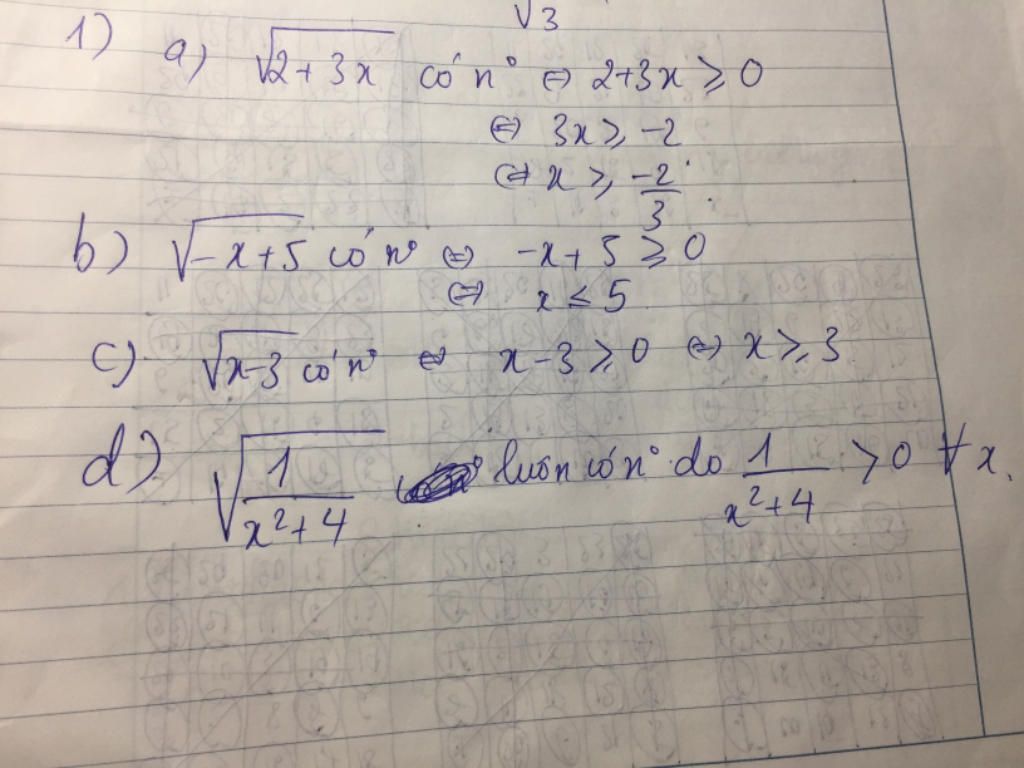 √3
1) a) √(2+3x) có n° ⇔ 2+3x ≥ 0
⇔ 3x ≥ -2
⇔ x ≥ -2/3.
b) √(-x+5) có n° ⇔ -x+5 ≥ 0
⇔ x ≤ 5
c) √(x-3) có n° ⇔ x-3 ≥ 0 ⇔ x ≥ 3
d) √(1/(x²+4)) luôn có n° do 1/(x²+4) > 0 ∀x.